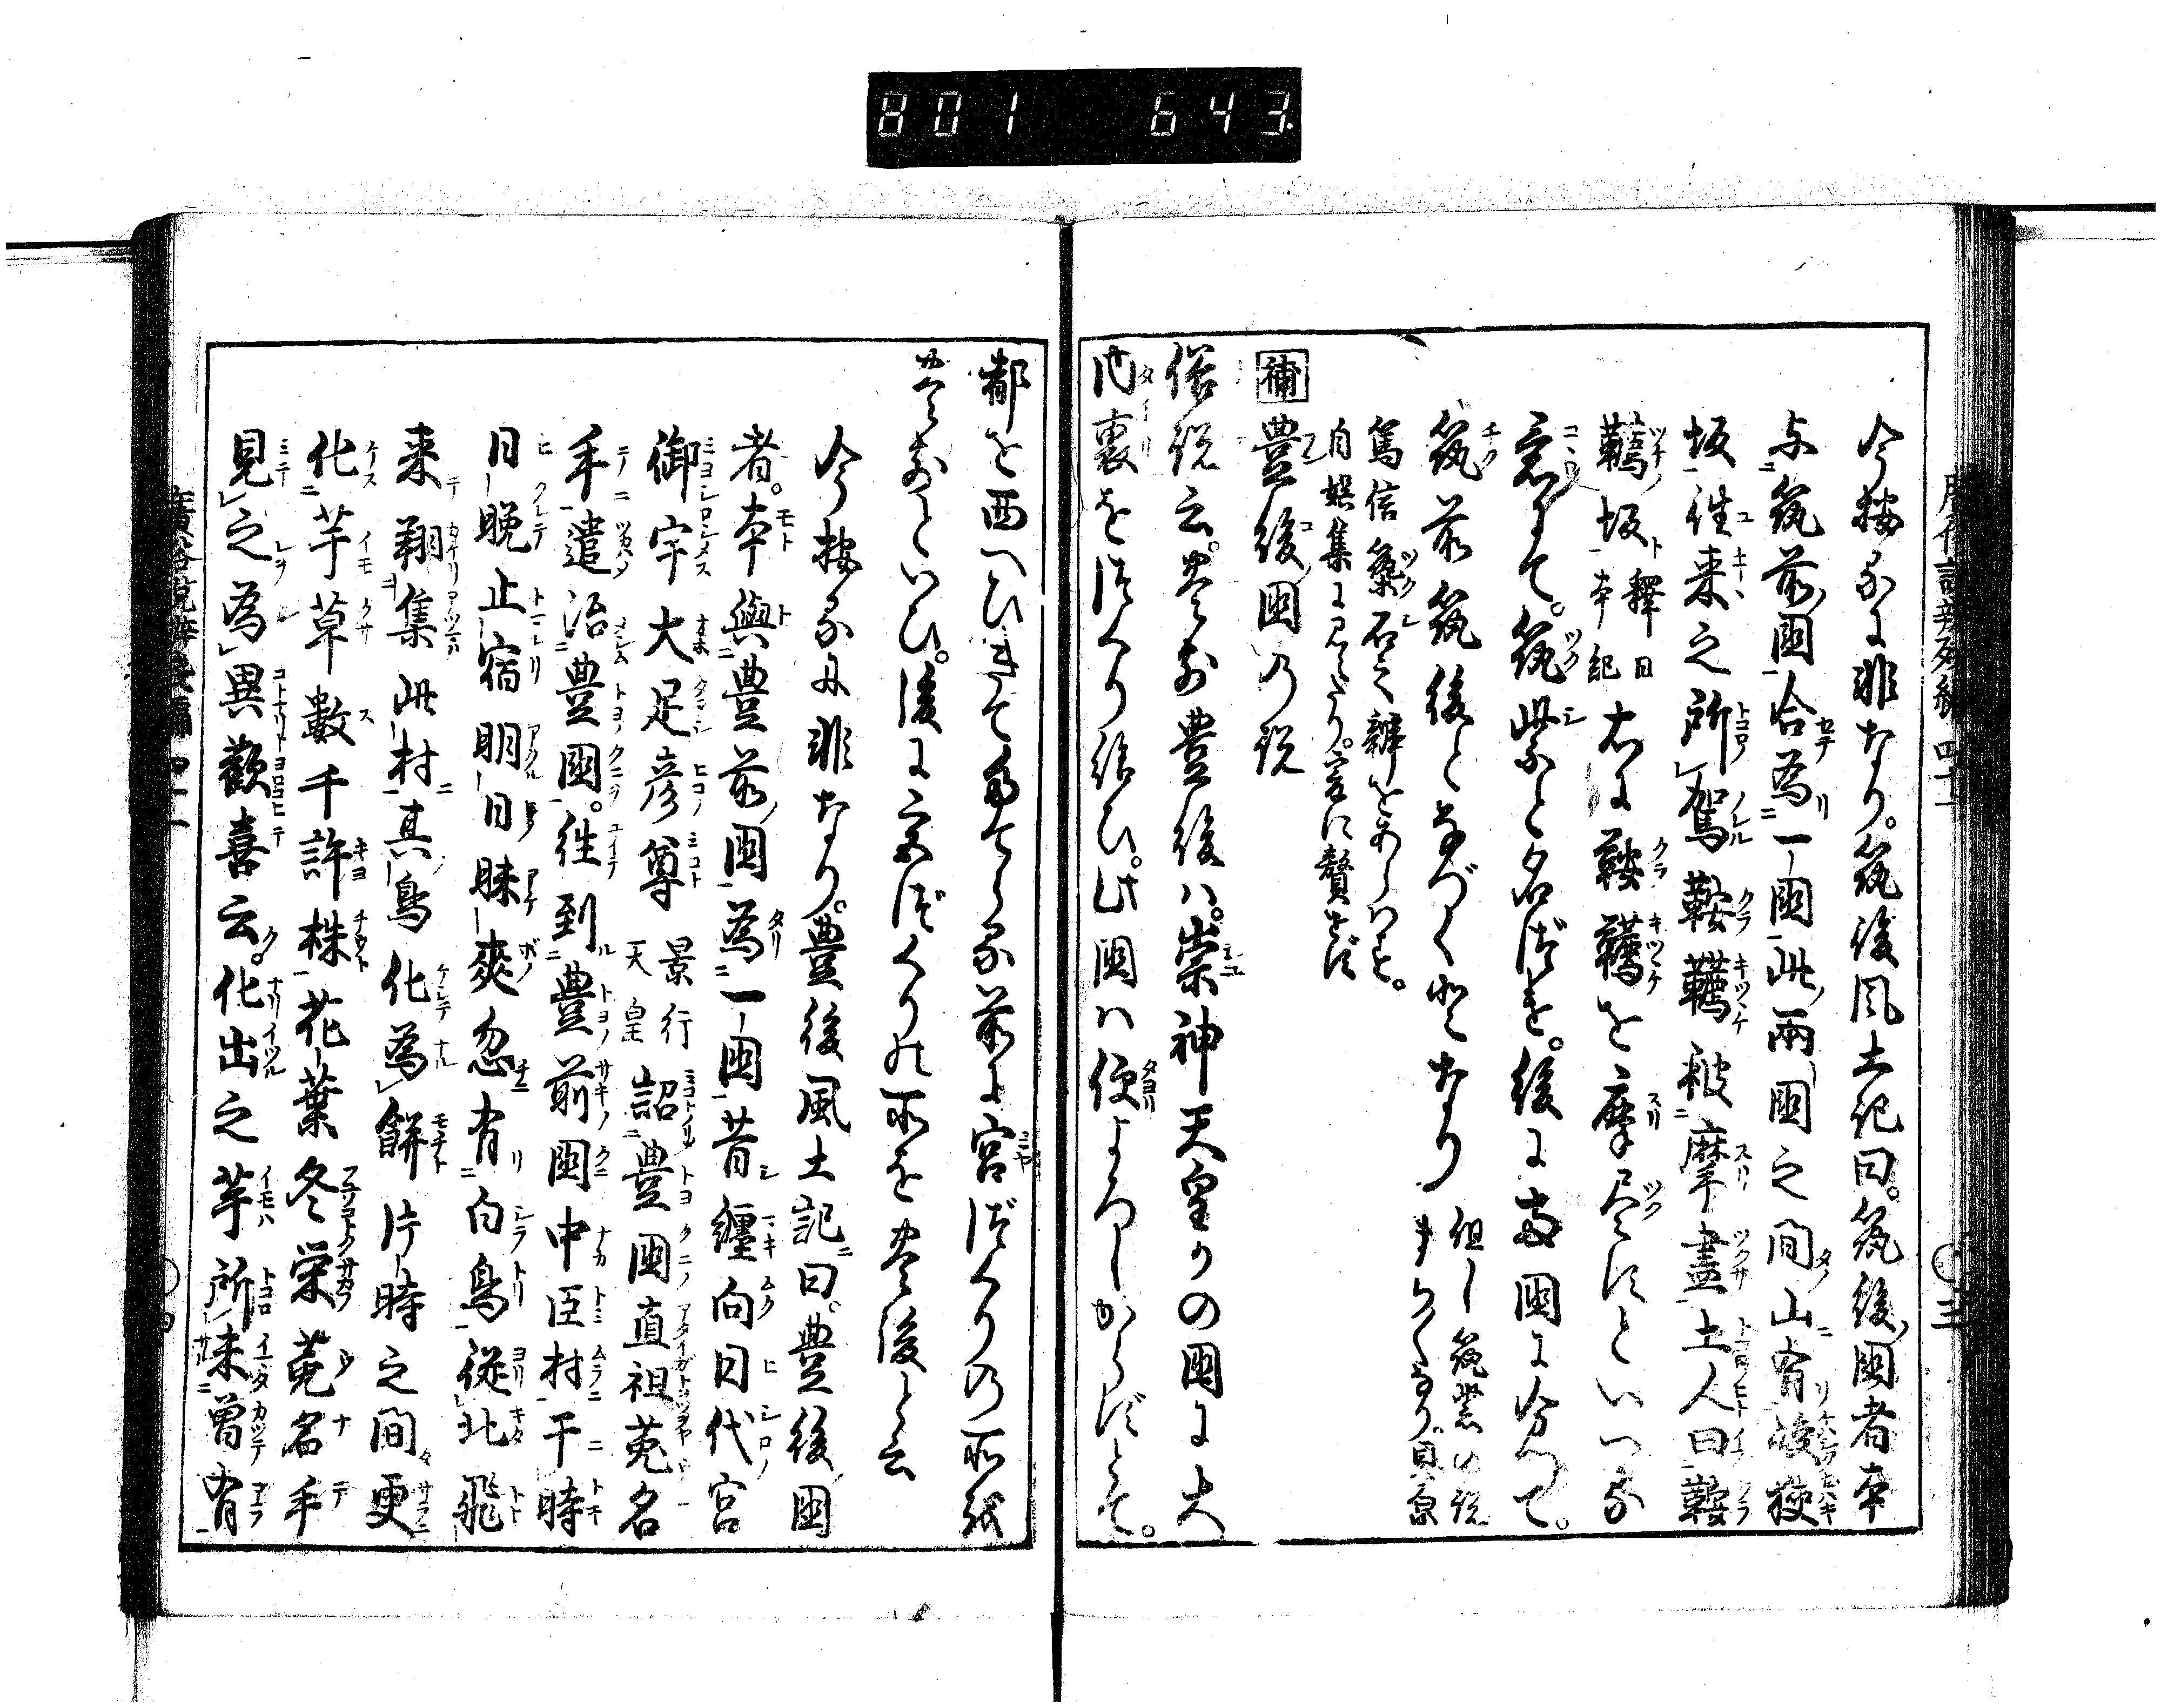 801 643
今按るに非なり。筑後風土記曰。筑後國者本
与筑前國合為一國此兩國之間山有峻狹
坂往来之所駕鞍韉被摩盡土人曰鞍
韉盡之坂 釋日本紀 右に鞍韉を摩尽すといつる
意にて。筑紫と名づけ。後に両国に分つて。
筑前筑後となづく也となり 但し筑紫の説まち〱なり。貝原
篤信築石之辨をあらはす。
自娯集に見へたり。爰に贅せず
補 豊後國の説
俗説云。豊前豊後ハ。崇神天皇うの国に大
内裏を作くり給ひ。此国ハ便よろしからずとて。
都を西へひきてたてらる前に宮づくりの所を
豊前といひ。後に宮づくりの所を豊後と云
今按るに非なり。豊後風土記曰。豊後國
者。本與豊前國為一國昔纒向日代宮
御宇大足彦尊 景行天皇 詔豊國直祖菟名
手遣治豊國。往到豊前國中臣村于時
日晩止宿明日昧爽忽有白鳥從北飛
来翔集此村其鳥化為餅片時之間更
化芋草數千許株花葉冬栄菟名手
見之為異歡喜云。化出之芋所未曽有